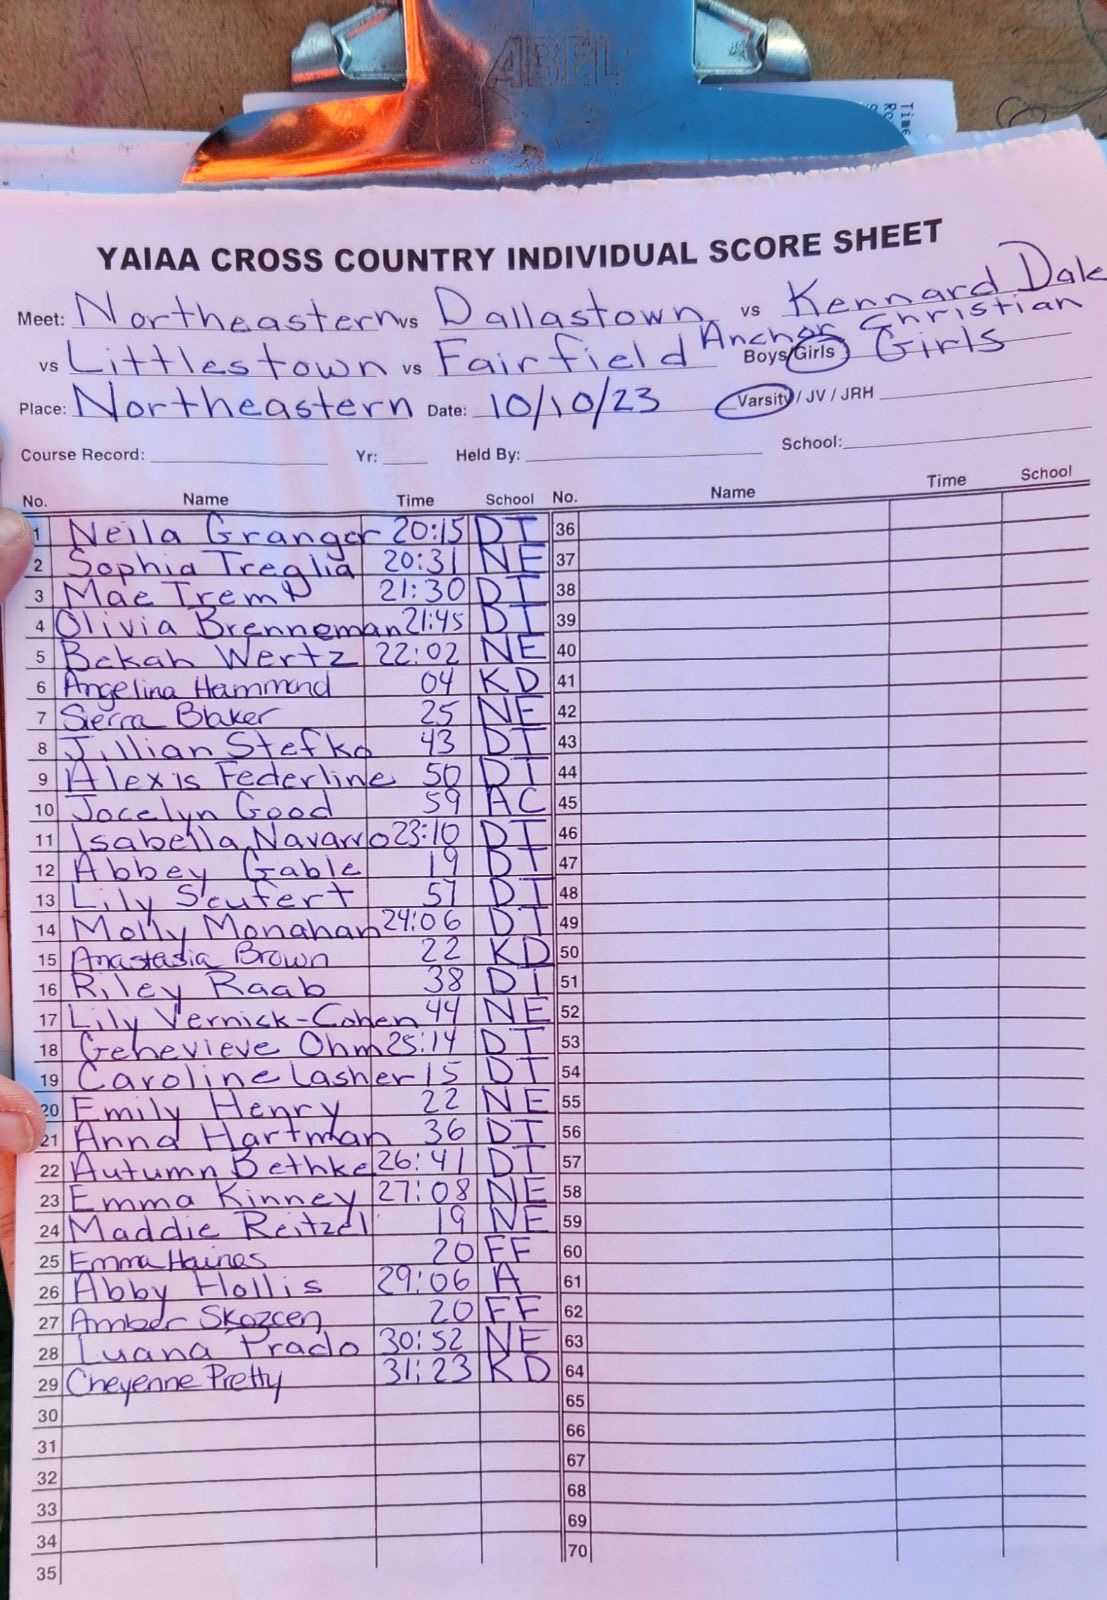 ABEL
Time
YAIAA CROSS COUNTRY INDIVIDUAL SCORE SHEET
Meet: Northeastern vs Dallastown vs Kennard Dale
vs Littlestown vs Fairfield Anchor Christian
Boys/Girls Girls
Place: Northeastern Date: 10/10/23 Varsity / JV / JRH
Course Record: Yr: Held By: School:
No. Name Time School No. Name Time School
1 Neila Granger 20:15 DT 36
2 Sophia Treglia 20:31 NE 37
3 Mae Tremt 21:30 DT 38
4 Olivia Brenneman 21:45 DT 39
5 Bekah Wertz 22:02 NE 40
6 Angelina Hammond 04 KD 41
7 Sierra Blaker 25 NE 42
8 Jillian Stefko 43 DT 43
9 Alexis Federline 50 DT 44
10 Jocelyn Good 59 AC 45
11 Isabella Navarro 23:10 DT 46
12 Abbey Gable 19 DT 47
13 Lily Seufert 57 DT 48
14 Molly Monahan 24:06 DT 49
15 Anastasia Brown 22 KD 50
16 Riley Raab 38 DT 51
17 Lily Vernick-Cohen 44 NE 52
18 Genevieve Ohm 25:14 DT 53
19 Caroline Lasher 15 DT 54
20 Emily Henry 22 NE 55
21 Anna Hartman 36 DT 56
22 Autumn Bethke 26:41 DT 57
23 Emma Kinney 27:08 NE 58
24 Maddie Reitzel 19 NE 59
25 Emma Haines 20 FF 60
26 Abby Hollis 29:06 A 61
27 Amber Skozcen 20 FF 62
28 Luana Prado 30:52 NE 63
29 Cheyenne Pretty 31:23 KD 64
30 65
31 66
32 67
33 68
34 69
35 70